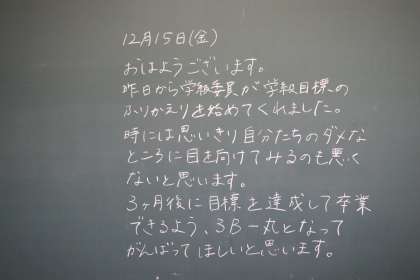 12月15日(金)
おはようございます。
昨日から学級委員が学級目標の
ふりかえりを始めてくれました。
時には思いきり自分たちのダメな
ところに目を向けてみるのも悪く
ないと思います。
3ヶ月後に目標を達成して卒業
できるよう、3B一丸となって
がんばってほしいと思います。